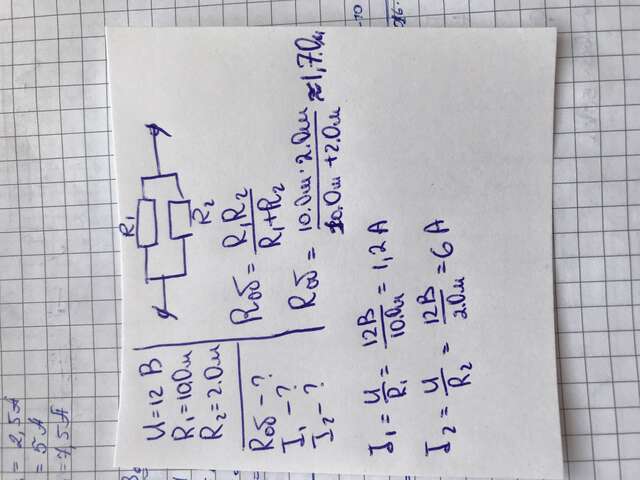 = 2,5A
= 5 A
= 7,5A
U = 12 В
R₁ = 10.Ом
R₂ = 2.Ом
Rоб – ?
I₁ – ?
I₂ – ?
R₁
R₂
Rоб = R₁R₂ / R₁+R₂
Rоб = 10.Ом · 2.Ом / 10.Ом + 2.Ом ≈ 1,7.Ом
I₁ = U / R₁ = 12В / 10.Ом = 1,2 А
I₂ = U / R₂ = 12В / 2.Ом = 6 А